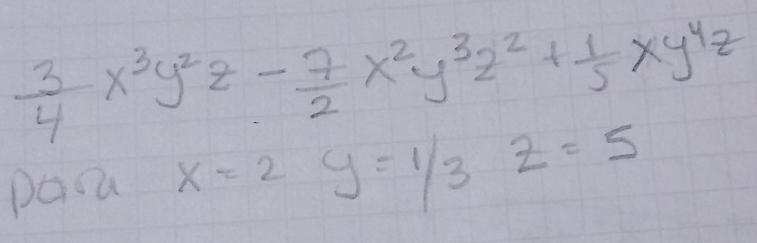 3/4 x³y²z - 7/2 x²y³z² + 1/5 xy⁴z
para x = 2 y = 1/3 z = 5